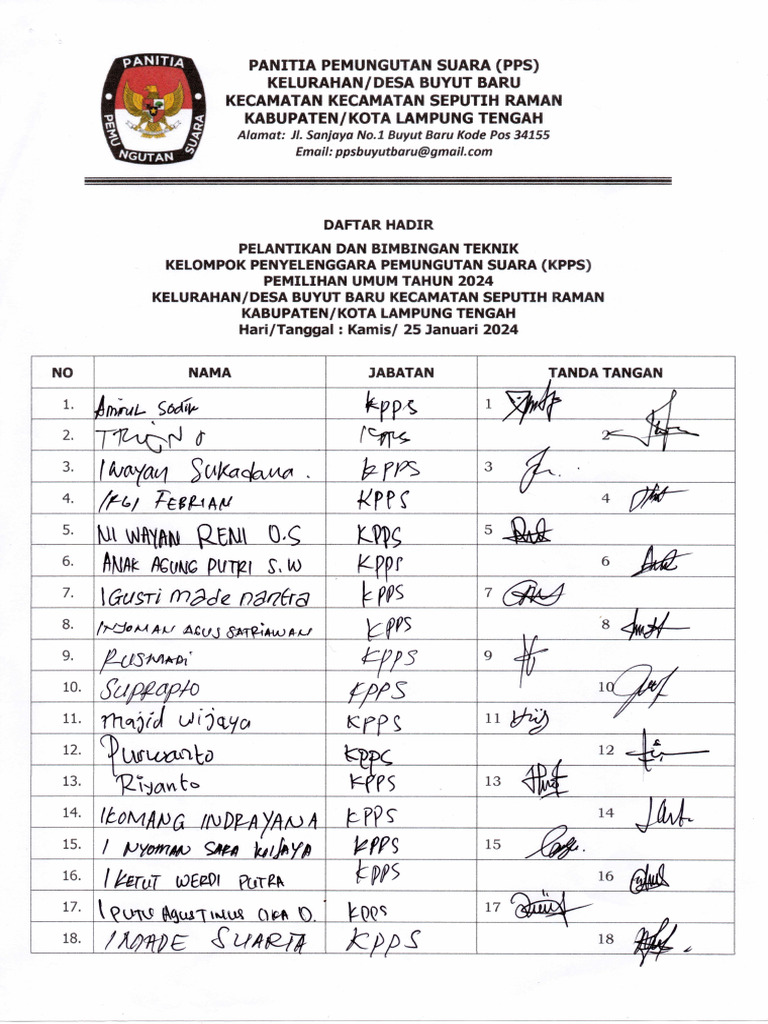 PANITIA
PEMUNGUTAN SUARA
PANITIA PEMUNGUTAN SUARA (PPS)
KELURAHAN/DESA BUYUT BARU
KECAMATAN KECAMATAN SEPUTIH RAMAN
KABUPATEN/KOTA LAMPUNG TENGAH
Alamat: Jl. Sanjaya No.1 Buyut Baru Kode Pos 34155
Email: ppsbuyutbaru@gmail.com
DAFTAR HADIR
PELANTIKAN DAN BIMBINGAN TEKNIK
KELOMPOK PENYELENGGARA PEMUNGUTAN SUARA (KPPS)
PEMILIHAN UMUM TAHUN 2024
KELURAHAN/DESA BUYUT BARU KECAMATAN SEPUTIH RAMAN
KABUPATEN/KOTA LAMPUNG TENGAH
Hari/Tanggal : Kamis/ 25 Januari 2024
NO NAMA JABATAN TANDA TANGAN
1. Amirul Sodik KPPS 1
2. TRIONO KPPS 2
3. I Wayan Sukadana. KPPS 3
4. FEBRIAN KPPS 4
5. NI WAYAN RENI O.S KPPS 5
6. ANAK AGUNG PUTRI S.W KPPS 6
7. I Gusti made nantra KPPS 7
8. I NYOMAN AGUS SATRIAWAN KPPS 8
9. RUSMADI KPPS 9
10. Suprapto KPPS 10
11. majid wijaya KPPS 11
12. Purwanto KPPS 12
13. Riyanto KPPS 13
14. I KOMANG INDRAYANA KPPS 14
15. I NYOMAN SARA WIJAYA KPPS 15
16. I KETUT WERDI PUTRA KPPS 16
17. I PUTU AGUSTINUS CIKA D. KPPS 17
18. I MADE SUARTA KPPS 18